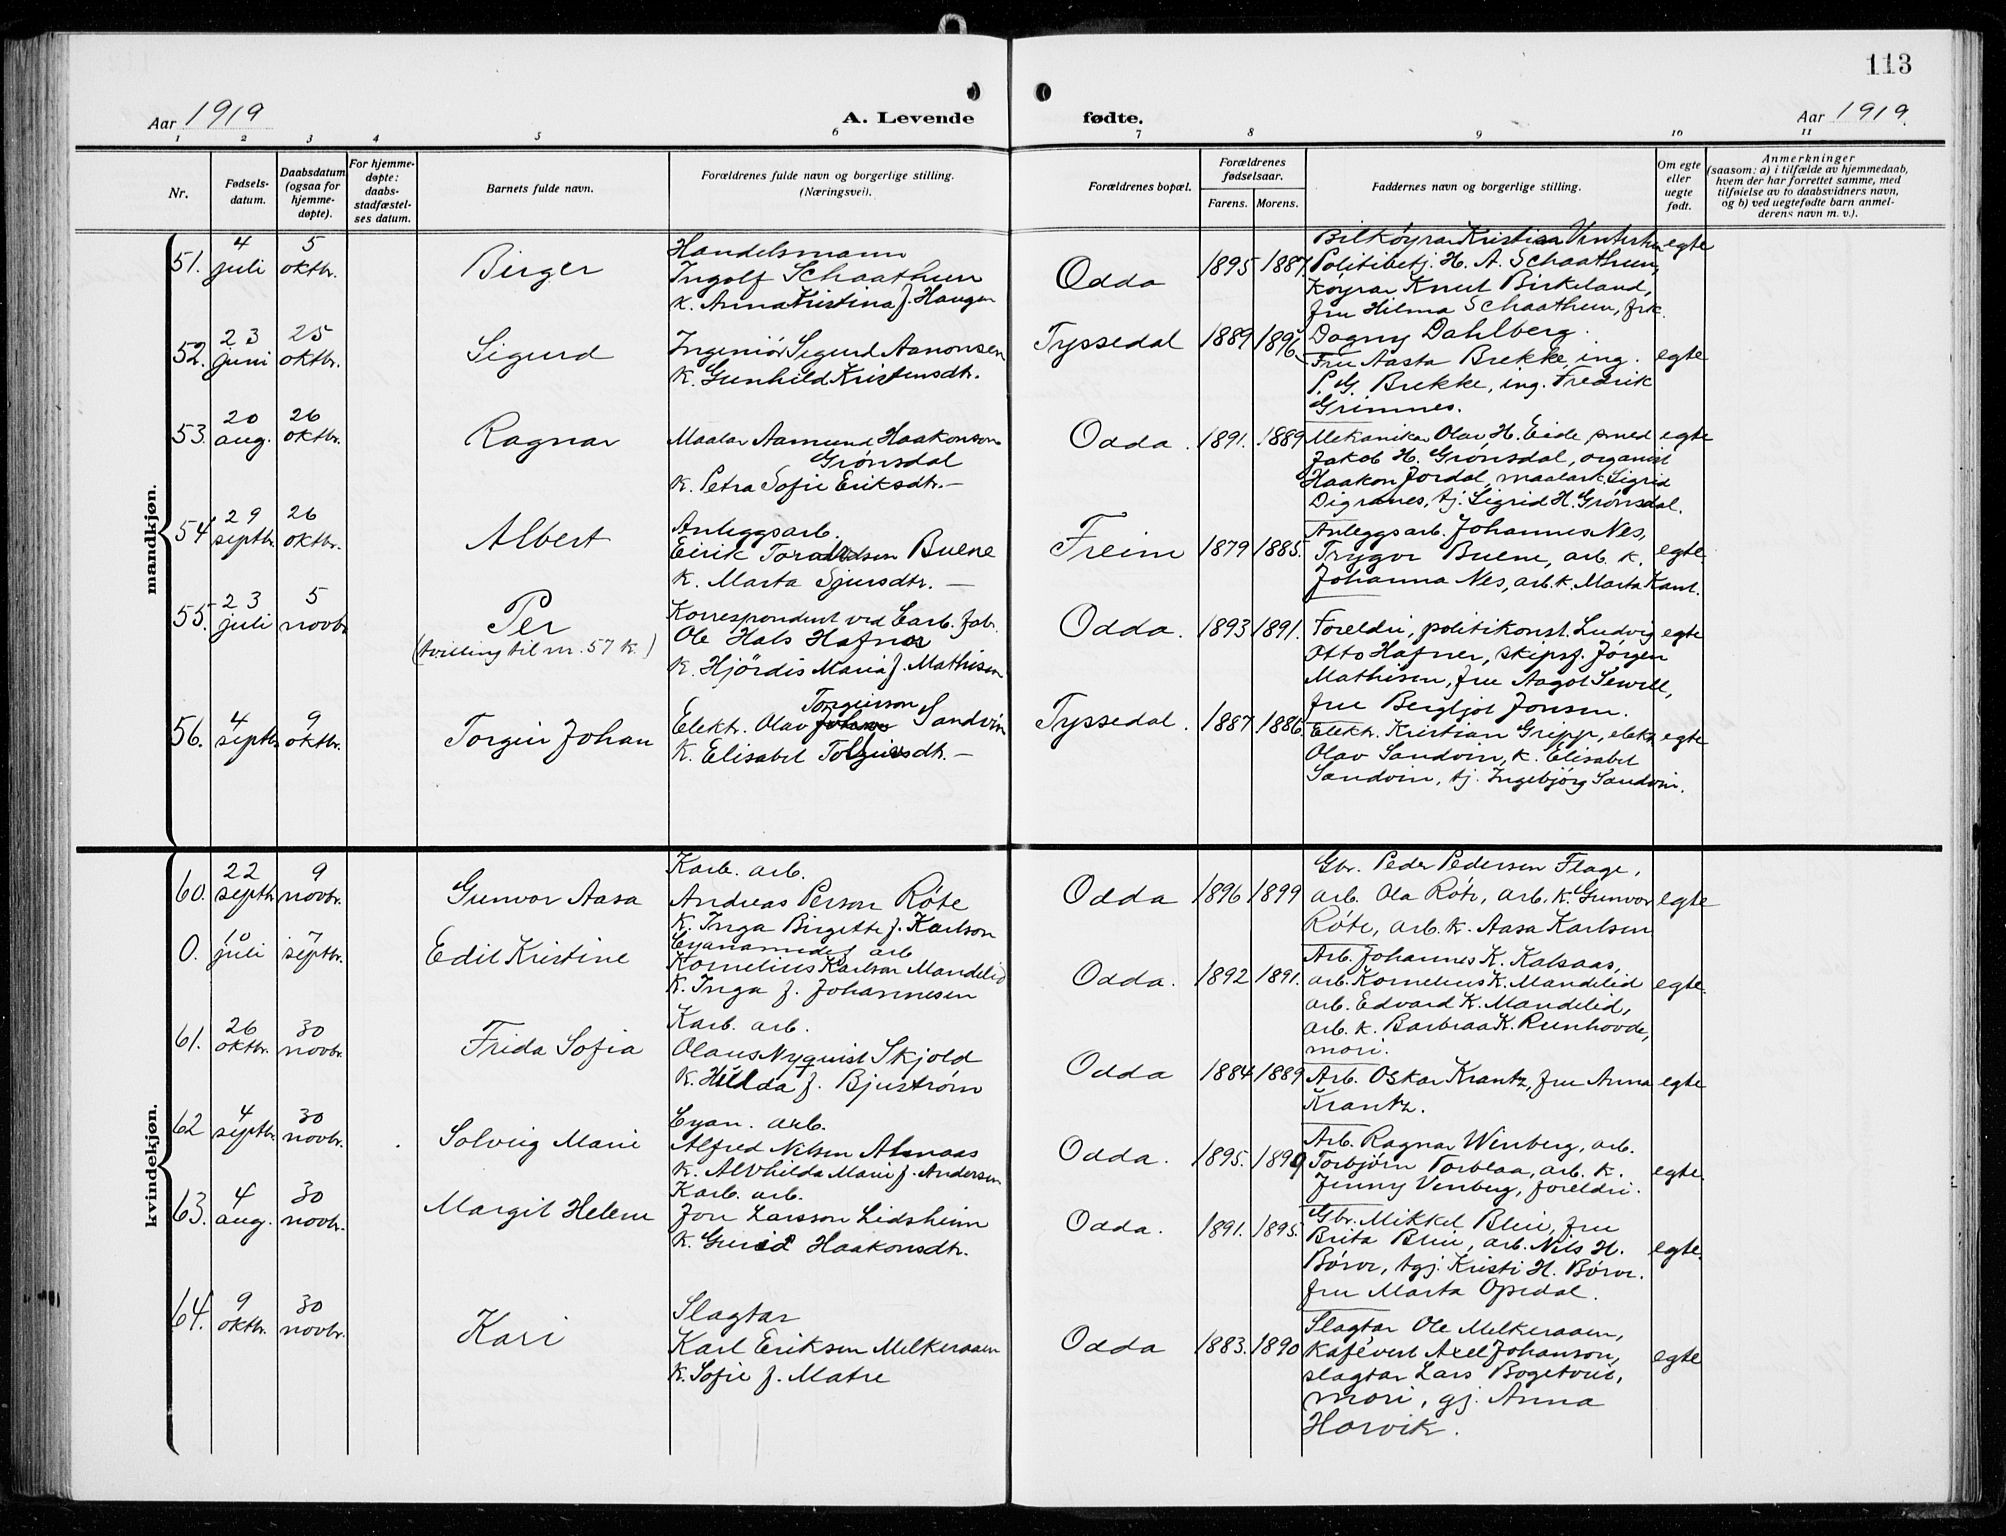 113
Aar 1919
A. Levende
fødte.
Aar 1919.
1 2 3 4 5 6 7 8 9 10 11
Nr.
Fødsels-
datum.
Daabsdatum
(ogsaa for
hjemme-
døpte).
For hjemme-
døpte:
daabs-
stadfæstel-
ses datum.
Barnets fulde navn.
Forældrenes fulde navn og borgerlige stilling.
(Næringsvei).
Forældrenes bopæl.
Forældrenes
fødselsaar.
Farens. Morens.
Faddernes navn og borgerlige stilling.
Om egte
eller
uegte
født.
Anmerkninger
(saasom: a) i tilfælde av hjemmedaab,
hvem der har forrettet samme, med
tilføielse av to daabsvidners navn,
og b) ved uegtefødte barn anmel-
derens navn m. v.).
mandkjøn.
51.
4
juli
5
oktbr.
Birger
Handelsmann
Ingolf Schaathun
k. Anna Kristina f. Haugen
Odda
1895 1887.
Bilkøyrar Kristian
Politibetj. H. A. Schaathun,
Køyrar Knut Birkeland,
fru Hilma Schaathun, frk.
Dagny Dahlberg.
egte
52.
23
juni
25
oktbr.
Sigurd
Ingeniør Sigurd Aanonsen
k. Gunhild Kristensdtr.
Tyssedal
1889 1896
Fru Aasta Brekke, ing.
P. G. Brekke, ing. Fredrik
Grimnes.
egte
53.
20
aug.
26
oktbr.
Ragnar
Maalar Aamund Haakonson
Grønsdal
k. Petra Sofie Eriksdtr. —
Odda.
1891. 1889
Mekanikar Olav H. Eide, smed
Jakob H. Grønsdal, organist
Haakon Jordal, maalark. Sigrid
Digranes, tj. Sigrid H. Grønsdal.
egte
54
29
septbr.
26
oktbr.
Albert
Anleggsarb.
Eirik Toraldsen Buene
k. Marta Sjursdtr. —
Freim
1879 1885.
Anleggsarb. Johannes Nes,
Trygve Buene, arb. k.
Johanna Nes, arb. k. Marta Kant.
egte.
55.
23
juli
5
novbr
Per
(tvilling til nr. 57 k.)
Korrespondent ved Carb. fabr.
Ole Hals Hafnor
k. Hjördis Maria f. Mathisen
Odda.
1893 1891.
Foreldri, politikonst. Ludvig
Otto Hafner, skipsf. Jørgen
Mathisen, fru Aagot Sewell,
fru Bergljot Jonsen.
egte
56.
4
septbr
9
oktbr.
Torgeir Johan
Torgeirson
Elektr. Olav Sandvin
k. Elisabet Torgeirsdtr. —
Tyssedal.
1887 1886
Elektr. Kristian Gripp, elekt
Olav Sandvin, k. Elisabet
Sandvin, tj. Ingebjørg Sandvin.
egte
kvindekjøn.
60.
22
septbr
9
novbr.
Gunvor Aasa
Karb. arb.
Andreas Person Røte
k. Inga Birgitte f. Karlson
Odda
1896 1899
Gbr. Peder Pedersen Flage,
arb. Ola Røte, arb. k. Gunvor
Røte, arb. k. Aasa Karlsen
egte
0.
10
juli
7
septbr.
Edit Kristine
Cyanamidf arb
Kornelius Karlson Mandelid
k. Inga f. Johannesen
Odda.
1892 1891.
Arb. Johannes K. Kalsaas,
arb. Kornelius K. Mandelid
arb. Edvard K. Mandelid,
arb. k. Barbraa K. Runhovde,
mori.
egte.
61.
26
oktbr.
30
novbr.
Frida Sofia
Karb. arb.
Olaus Nyquist Skjold
k. Hilda f. Bjustrøm
Odda
1884 1889
Arb. Oskar Krantz, fru Anna
Krantz.
egte
62
4
septbr.
30
novbr.
Solveig Marie
Cyan. arb.
Alfred Nilsen Alsnaas
k. Alvhilda Marie f. Andersen
Odda.
1895. 1890
Arb. Ragnar Winberg, arb.
Torbjørn Torblaa, arb. k.
Jenny Venberg, foreldri.
egte.
63.
4
aug.
30
novbr.
Margit Helene
Karb. arb.
Jon Larsson Lidsheim
k. Gurid Haakonsdtr.
Odda.
1891. 1895.
Gbr. Mikkel Bleie, fru
Brita Bleie, arb. Nils H.
Børve, tgj. Kristi H. Børve.
fru Marta Opedal.
egte.
64.
9
oktbr.
30
novbr.
Kari
Slagtar
Karl Eriksen Melkeraaen
k. Sofie f. Matre
Odda
1883. 1890
Slagtar Ole Melkeraaen,
kafévert Axel Johanson,
slagtar Lars Bogetveit,
mori, gj. Anna
Horvik.
egte